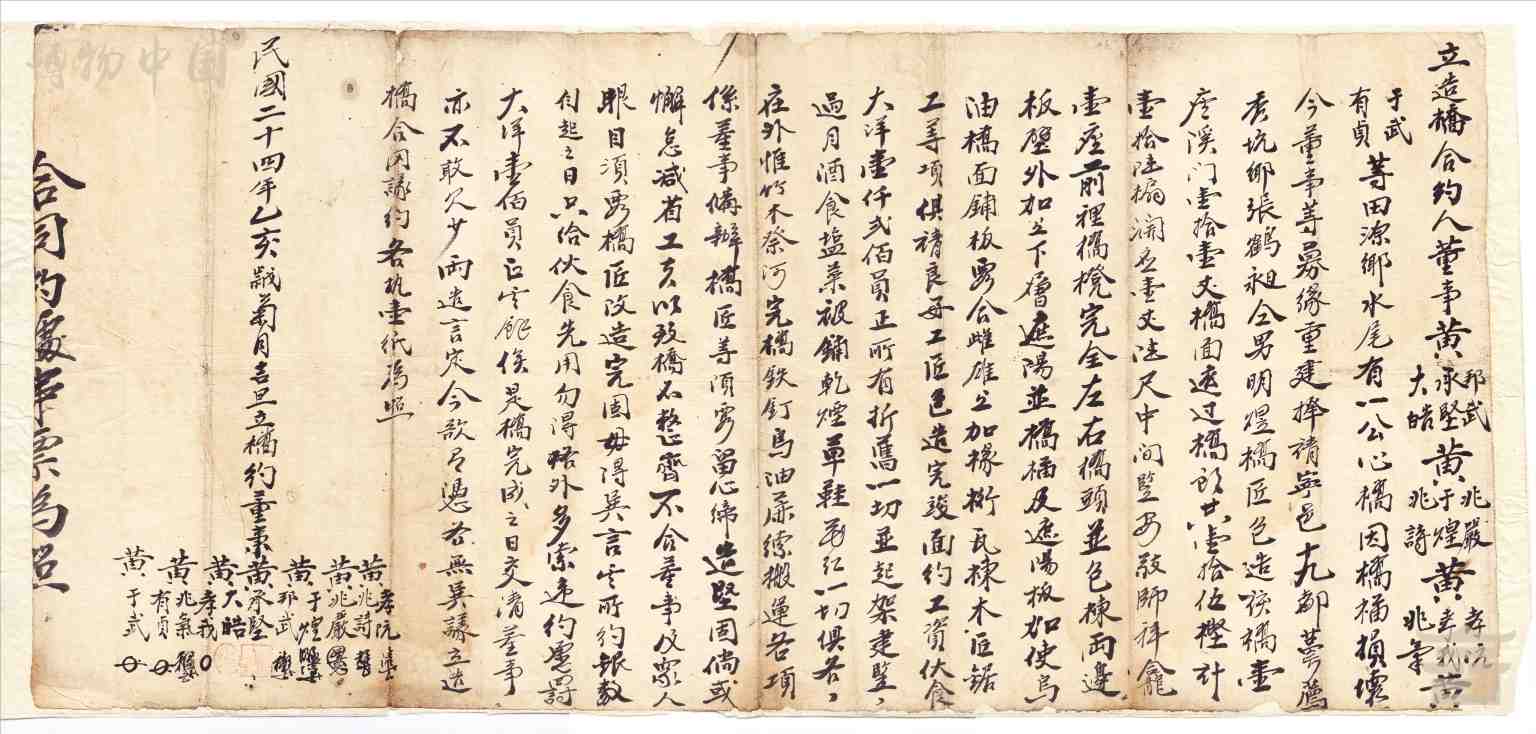 立造橋合約人董事黃 邦武 承堅 大皓 黃 兆嚴 于煌 兆詩 黃 孝沅 孝我 兆氣 黃
于武 有貞 等田源鄉水尾有一公心橋因橋損壞
今董事等募緣重建擇請寧邑十九都
秀坑鄉張鶴昶仝男明煜橋匠包造該橋壹
座溪门壹拾壹丈橋面透过橋頭廿壹拾伍樫計
壹拾陸扇濶壹丈法尺中间竪安敬師拜龕
壹座前裡橋櫈完全左右橋頭並包棟两邊
板壁外加上下層遮陽並橋及遮陽板加使烏
油橋面鋪板要合雌雄上加椽桁瓦棟木匠鋸
工等項俱請良安工匠包造完竣面约工資伙食
大洋壹仟弍佰員正所有折舊一切並起架建竪
過月酒食塩菜被鋪乾煙草鞋花红一切俱各
在外惟竹木祭河完橋鉄釘烏油蔴索搬運各項
係董事俻辦橋匠等須要留心締造堅固倘或
懈怠减省工夫以致橋不整齊不合董事及眾人
眼目須要橋匠改造完固毋得異言其所約銀数
自起之日只给伙食先用勿得格外多索违约處罰
大洋壹佰員正其餘俟是橋完成之日交清董事
亦不敢欠少两造言定今欲有憑各無異議立造
橋合同議约各执壹紙為照
民國二十四年乙亥歲菊月吉旦立橋約董事
黃孝沅
黃兆詩
黃兆嚴
黃于煌
黃邦武
黃承堅
黃大皓
黃孝我
黃兆氣
黃有貞
黃于武
合同约處事票為照
博物中国